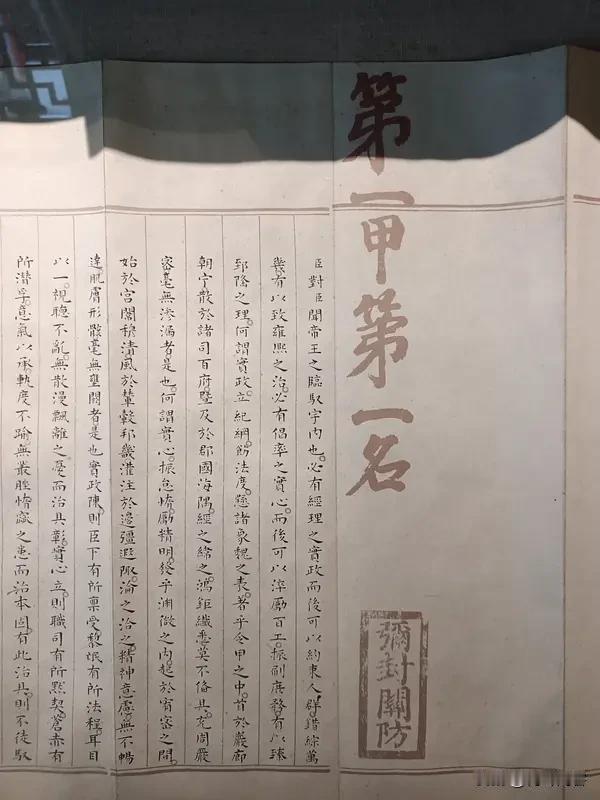 第一甲第一名
彌封關防
臣對臣聞帝王之臨馭宇內也必有經理之實政而後可以約束人群錯綜萬
幾有以致雍熙之治必有倡率之實心而後可以淬勵百工振刷庶務有以臻
郅隆之理何謂實政立紀綱飭法度懸諸象魏之表著乎令甲之中首於巖廊
朝宁散於諸司百府暨及於郡國海隅經之緯之鴻鉅纖悉莫不備具充周嚴
密毫無滲漏者是也何謂實心振怠惰勵精明發乎淵微之內起於宥密之間
始於宮闈穆清風於輦轂邦畿灌注於邊疆遐陬淪之洽之精神意慮無不暢
達肌膚形骸毫無壅閼者是也實政陳則臣下有所稟受黎氓有所法程耳目
以一視聽不亂無散漫飄離之憂而治具彰實心立則職司有所默契蒼赤有
所潛孚意氣以承軌度不踰無叢脞惰窳之患而治本固有此治具則不徒馭